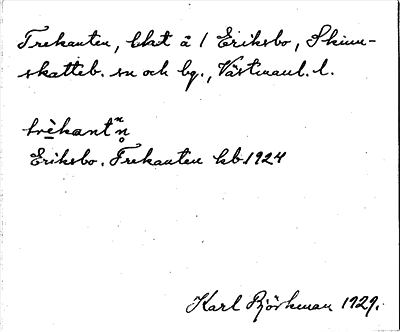 Trekanten, lht å 1 Eriksbo, Skinn-
skatteb. sn och bg., Västmanl. l.
trèkantn̥
Eriksbo. Trekanten kb 1924
Karl Björkman 1929.